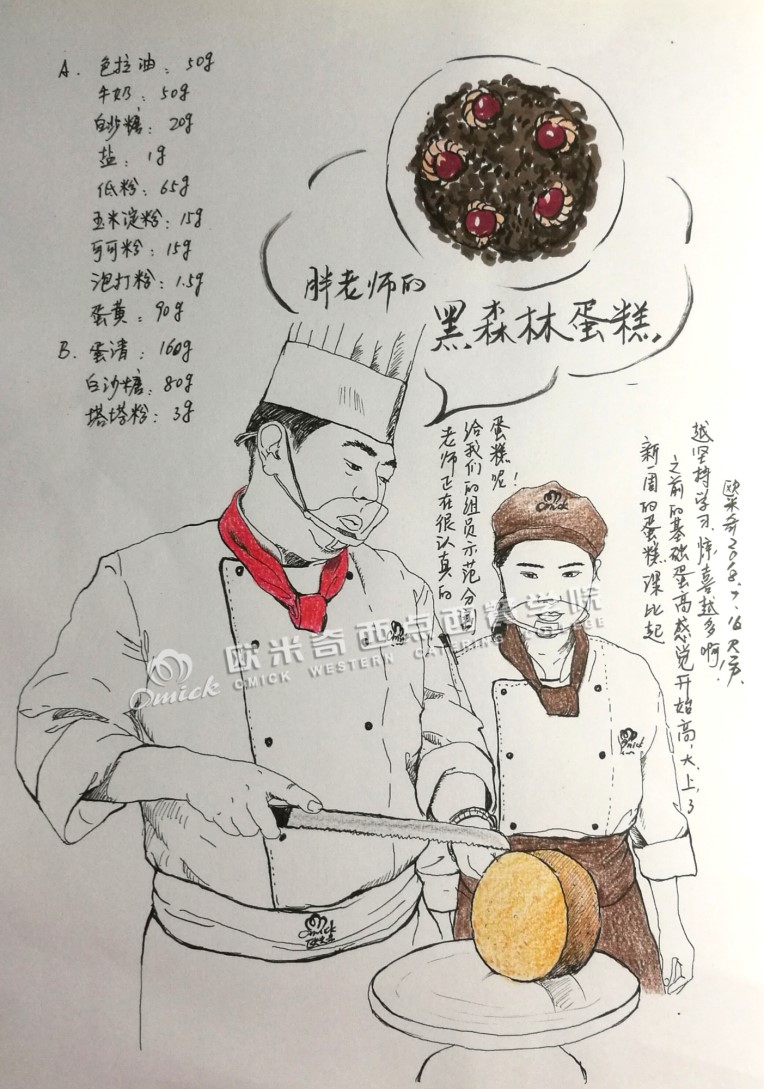 A. 色拉油：50g
牛奶：50g
白砂糖：20g
盐：1g
低粉：65g
玉米淀粉：15g
可可粉：15g
泡打粉：1.5g
蛋黄：90g
B. 蛋清：160g
白沙糖：80g
塔塔粉：3g
胖老师的
黑森林蛋糕.
老师正在很认真的
给我们的组员示范分割
蛋糕呢！
新一周的蛋糕课比起
之前的基础蛋高感觉开始高大上了
越坚持学习,惊喜越多啊.
欧米奇2018.7.16
Omick
Omick
Omick
Omick
欧米奇
Omick
欧米奇西点西餐学院
OMICK WESTERN CATERING COLLEGE